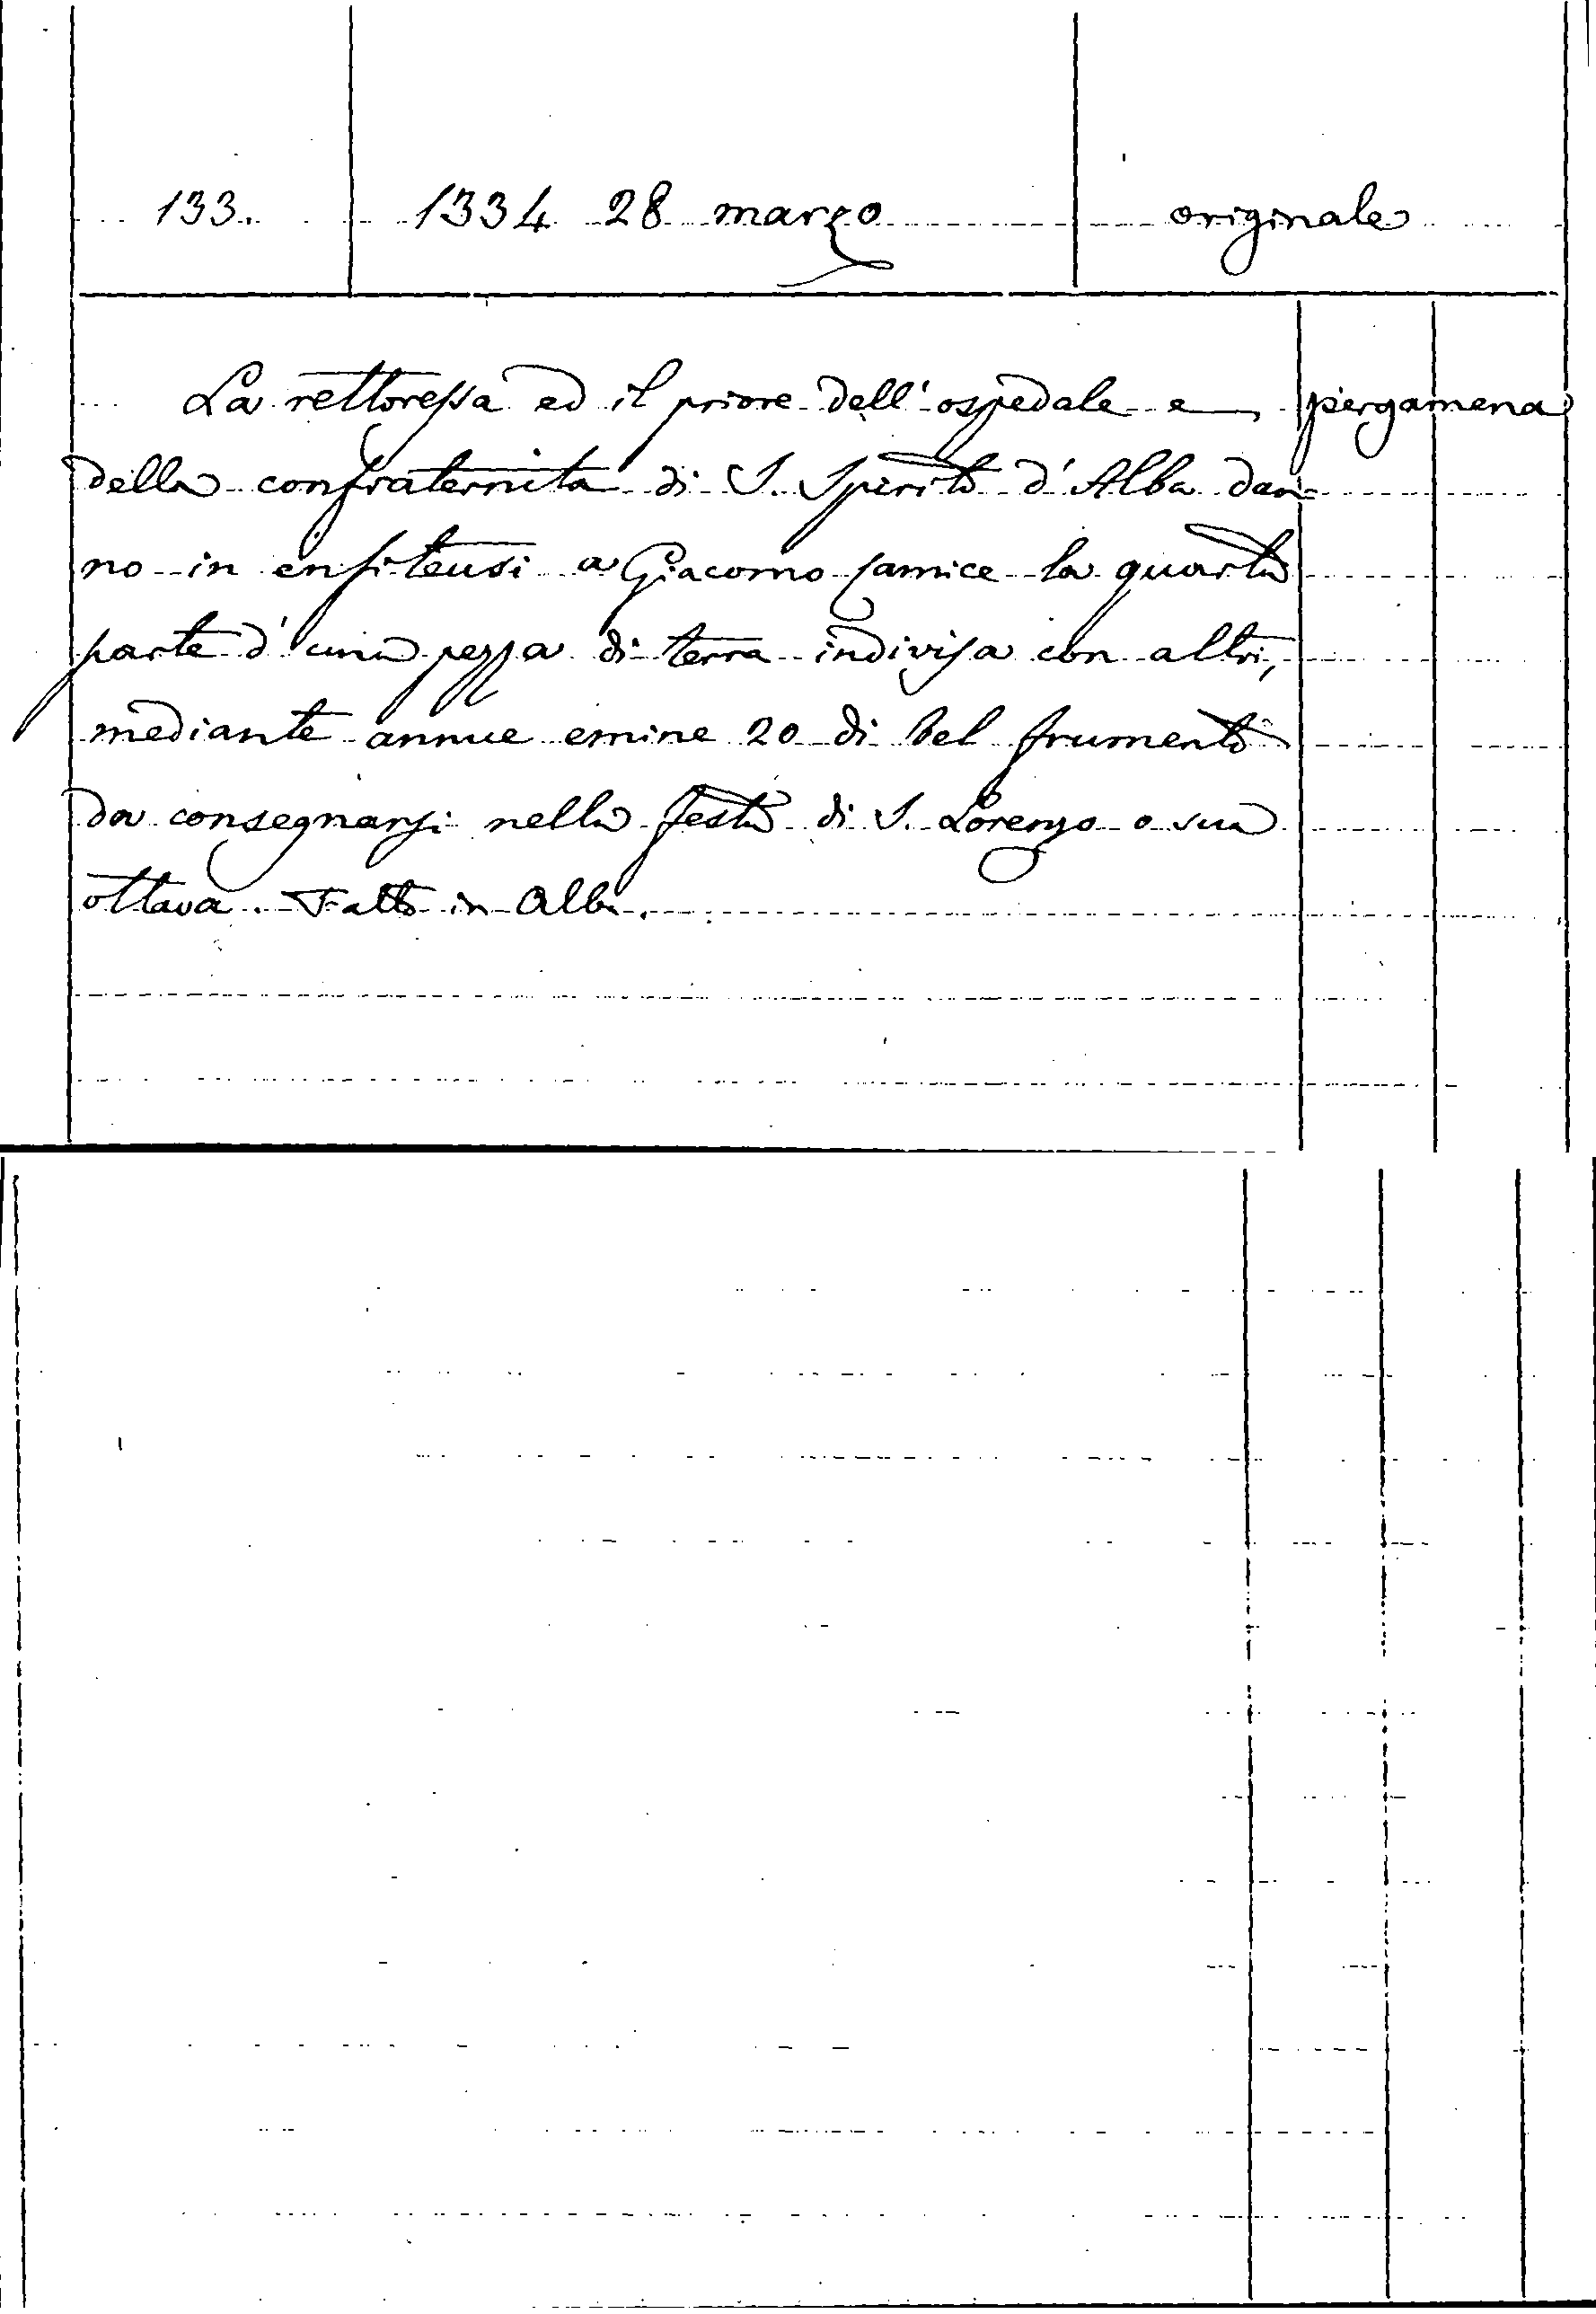 133. 1334 28 marzo originale
La rettoressa ed il priore dell'ospedale e pergamena
della confraternita di S. Spirito d'Alba dan=
no in enfiteusi a Giacomo Samice la quarta
parte d'una pezza di terra indivisa con altri,
mediante annue emine 20 di bel frumento
da consegnarsi nella festa di S. Lorenzo o sua
ottava. Fatto in Alba.